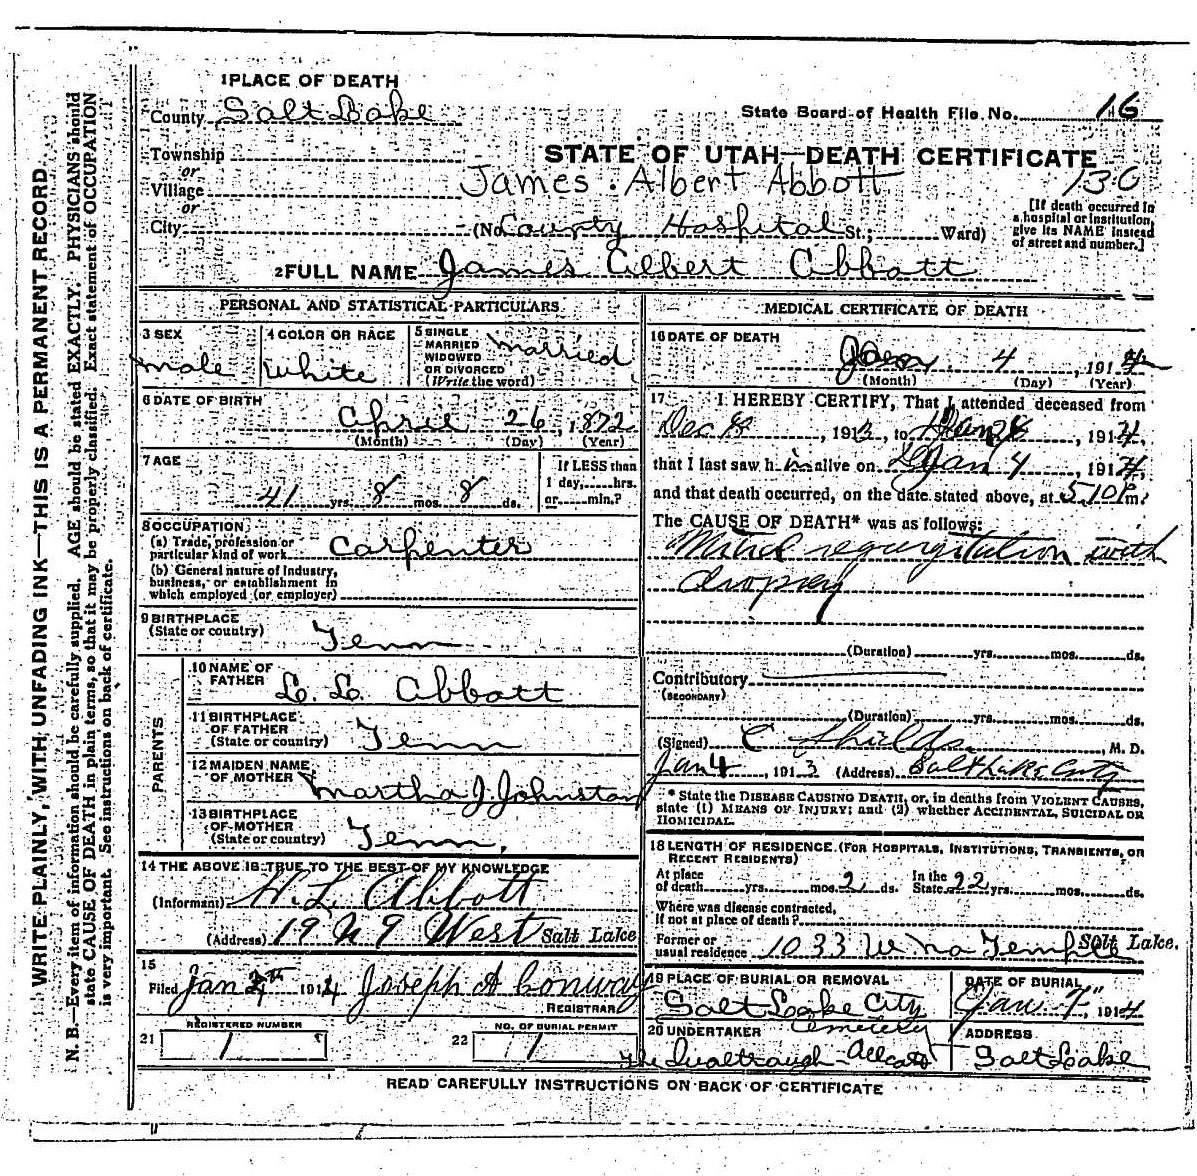 1 PLACE OF DEATH
County Salt Lake
State Board of Health File No. 16
Township
or
Village
or
City
STATE OF UTAH—DEATH CERTIFICATE
James Albert Abbott 130
(No. County Hospital St.; Ward)
[If death occurred in a hospital or institution, give its NAME instead of street and number.]
2 FULL NAME James Albert Abbott
PERSONAL AND STATISTICAL PARTICULARS
3 SEX
male
4 COLOR OR RACE
White
5 SINGLE
MARRIED
WIDOWED
OR DIVORCED
(Write the word)
married
6 DATE OF BIRTH
April 26, 1872
(Month) (Day) (Year)
7 AGE
41 yrs. 8 mos. 8 ds.
If LESS than
1 day, hrs.
or min.?
8 OCCUPATION
(a) Trade, profession or
particular kind of work Carpenter
(b) General nature of Industry,
business, or establishment in
which employed (or employer)
9 BIRTHPLACE
(State or country)
Tenn
PARENTS
10 NAME OF
FATHER
L. L. Abbott
11 BIRTHPLACE
OF FATHER
(State or country)
Tenn
12 MAIDEN NAME
OF MOTHER
Martha J. Johnston
13 BIRTHPLACE
OF MOTHER
(State or country)
Tenn.
14 THE ABOVE IS TRUE TO THE BEST OF MY KNOWLEDGE
(Informant) H. L. Abbott
(Address) 19 N 9 West Salt Lake
15
Filed Jan 1914 Joseph A Conway
REGISTRAR
21 REGISTERED NUMBER
1
22 NO. OF BURIAL PERMIT
1
MEDICAL CERTIFICATE OF DEATH
16 DATE OF DEATH
Jan 4, 1914
(Month) (Day) (Year)
17 I HEREBY CERTIFY, That I attended deceased from
Dec , 191, to Jan , 1914,
that I last saw him alive on Jan 4, 1914,
and that death occurred, on the date stated above, at 5 10 P m.
The CAUSE OF DEATH* was as follows:
Mitral regurgitation with
dropsey
(Duration) yrs. mos. ds.
Contributory
(SECONDARY)
(Duration) yrs. mos. ds.
(Signed) C Shields, M. D.
Jan 4, 1913 (Address) Salt Lake City
* State the DISEASE CAUSING DEATH, or, in deaths from VIOLENT CAUSES,
state (1) MEANS OF INJURY; and (2) whether ACCIDENTAL, SUICIDAL OR
HOMICIDAL.
18 LENGTH OF RESIDENCE (FOR HOSPITALS, INSTITUTIONS, TRANSIENTS, OR
RECENT RESIDENTS)
At place
of death yrs. mos. 2 ds.
In the
State 22 yrs. mos. ds.
Where was disease contracted,
if not at place of death?
Former or
usual residence 1033 W. No Temple Salt Lake.
19 PLACE OF BURIAL OR REMOVAL
Salt Lake City
Cemetery
DATE OF BURIAL
Jan 7", 1914
20 UNDERTAKER
ADDRESS
Salt Lake
READ CAREFULLY INSTRUCTIONS ON BACK OF CERTIFICATE
WRITE PLAINLY, WITH UNFADING INK—THIS IS A PERMANENT RECORD.
N. B.—Every item of information should be carefully supplied. AGE should be stated EXACTLY. PHYSICIANS should
state CAUSE OF DEATH in plain terms, so that it may be properly classified. Exact statement of OCCUPATION
is very important. See instructions on back of certificate.